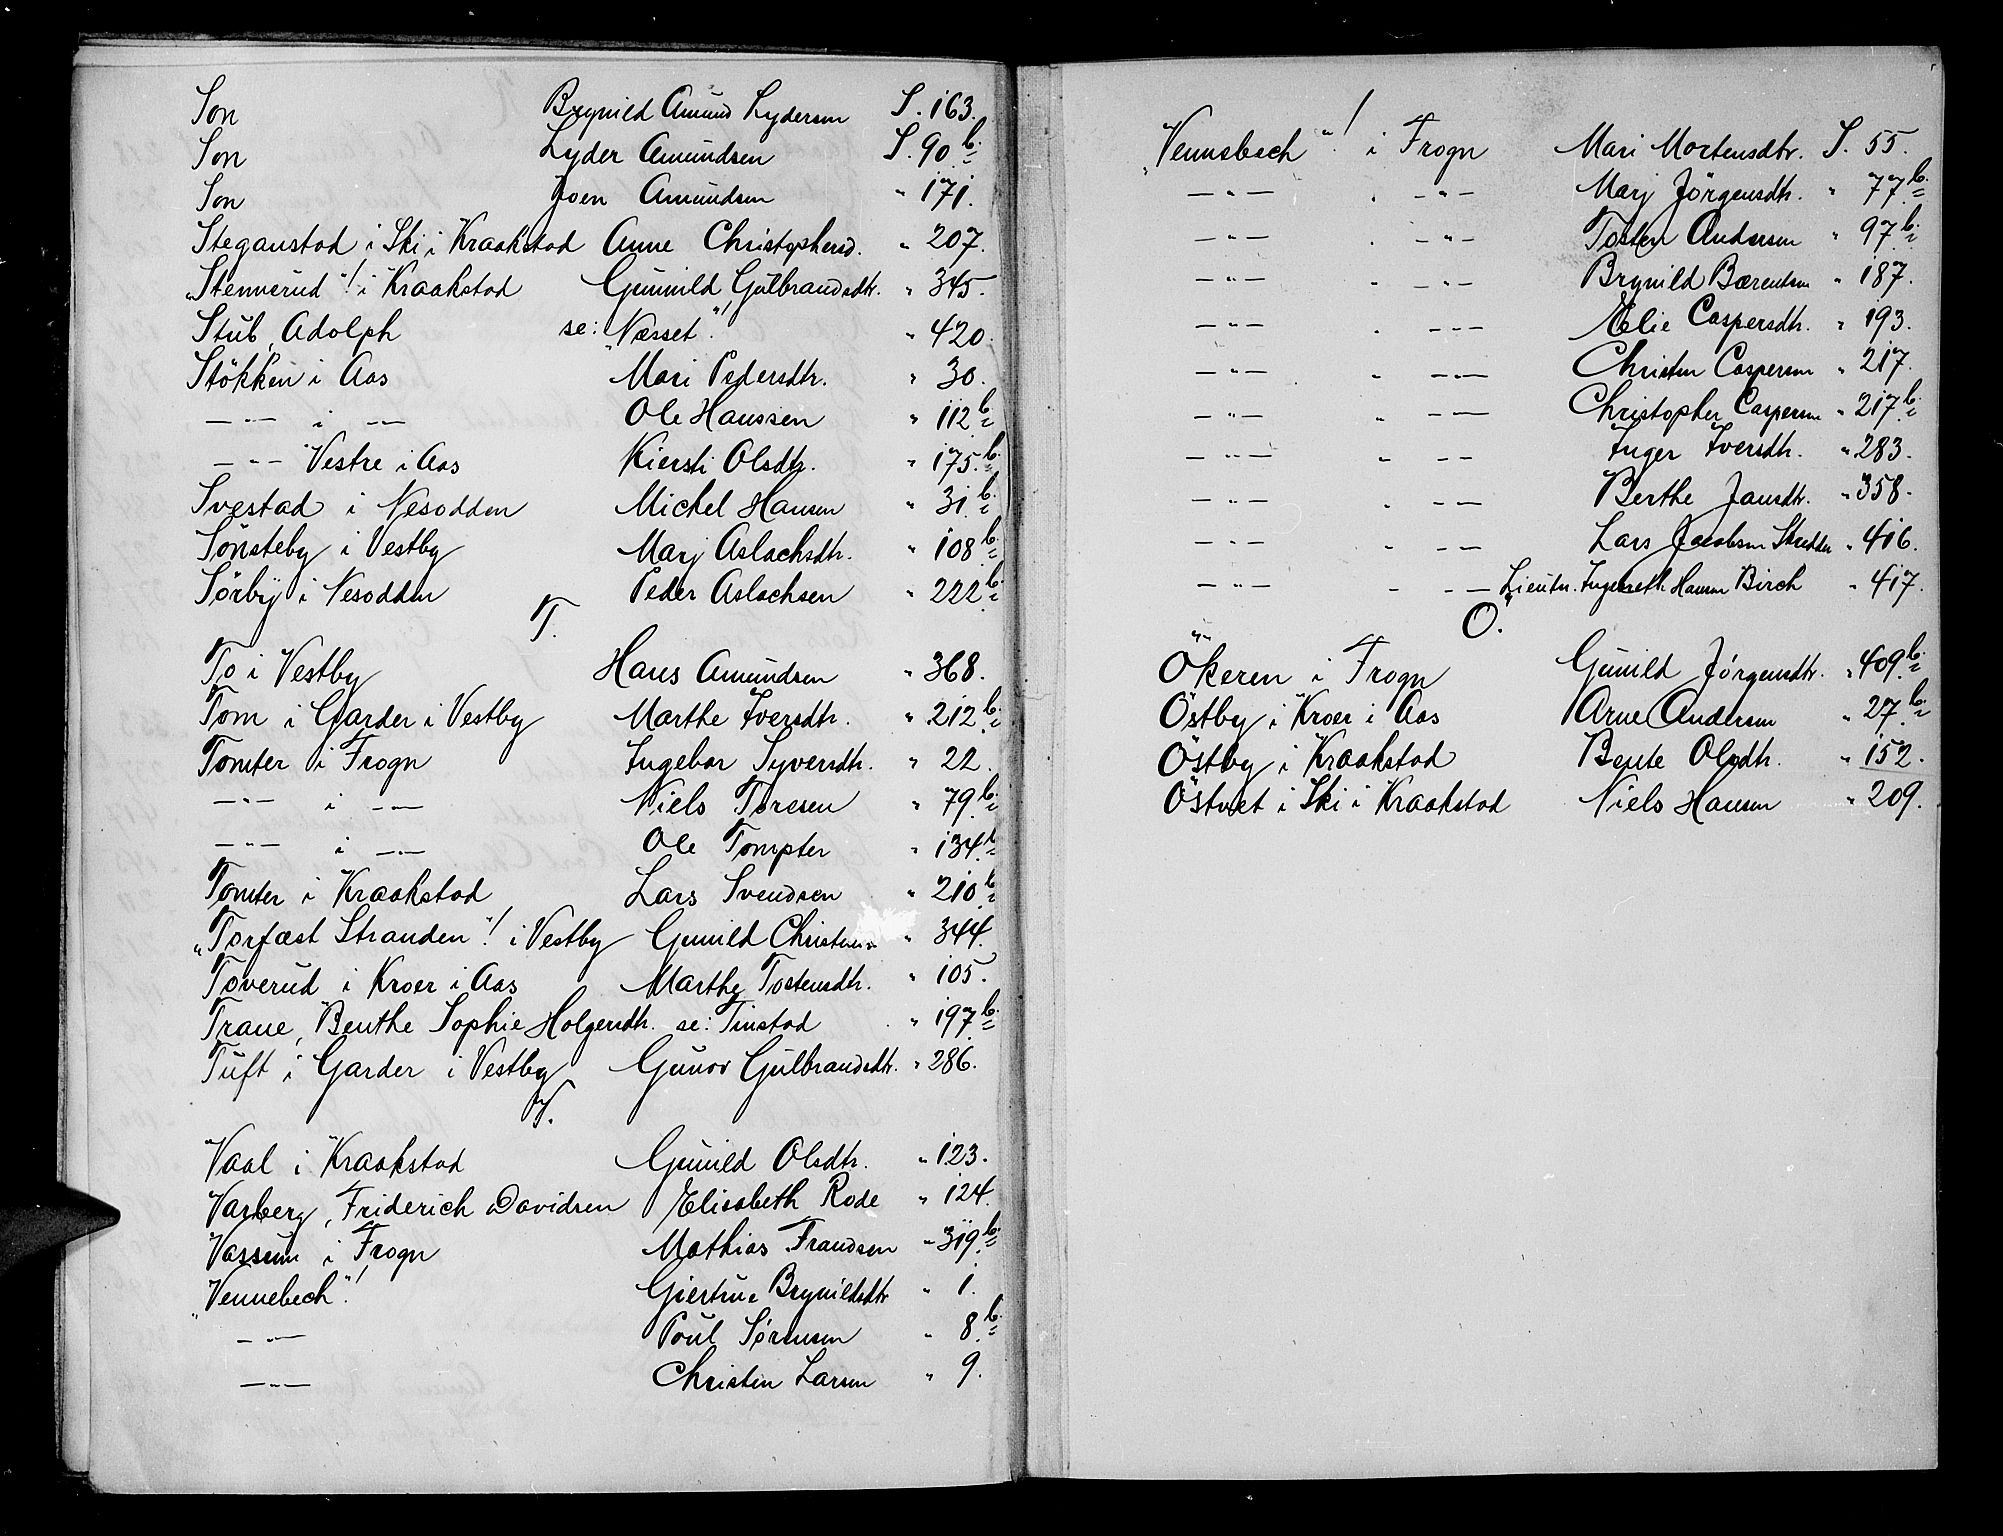 Son Brynild Amund Lydersen S. 163.
Son Lyder Amundsen S. 90 b.
Son Joen Amundsen " 171.
Steganstad i Ski i Kraakstad Anne Christophersd. " 207.
"Stennerud"! i Kraakstad Gunnild Gulbrandsdtr. " 345.
Stub, Adolph se: "Næsset"! " 420.
Stökken i Aas Mari Pedersdtr. " 30.
—"— i —"— Ole Hanssen " 112 b.
—"— Vestre i Aas Kiersti Olsdtr. " 175 b.
Svestad i Nesodden Michel Hansen " 31 b.
Sönsteby i Vestby Marj Aslachsdtr. " 108 b.
Sörby i Nesodden Peder Aslachsen " 222 b.
T.
To i Vestby Hans Amundsen " 368.
Tom i Garder i Vestby Marthe Iversdtr. " 212 b.
Tomter i Frogn Ingebor Syversdtr. " 22.
—"— i —"— Niels Toresen " 79 b.
—"— i —"— Ole Tompter " 134 b.
Tomter i Kraakstad Lars Svendsen " 210 b.
"Torfæst Stranden"! i Vestby Gunild " 344.
Toverud i Kroer i Aas Marthe Tostensdtr. " 105.
Trane, Benthe Sophie Holgersdtr. se: Tinstad " 197 b.
Tuft i Garder i Vestby Gunor Gulbrandsdtr. " 286.
V.
Vaal i Kraakstad Gunild Olsdtr. " 123.
Varberg, Friderich Davidsen Elisabeth Rode " 124.
Vassum i Frogn Mathias Frandsen " 319 b.
"Vennebech"! Giertrue Brynildsdtr " 1.
—"— Poul Sørensen " 8 b.
—"— Christen Larsen " 9.
"Vennebech"! i Frogn Mari Mortensdtr. S. 55.
—"— " —"— Marj Jörgensdtr. " 77 b.
—"— " —"— Tosten Andersen " 97 b.
—"— " —"— Brynild Bærentsen " 187.
—"— " —"— Elie Caspersdtr. " 193.
—"— " —"— Christen Caspersen " 217.
—"— " —"— Christopher Caspersen " 217 b.
—"— " —"— Inger Iversdtr. " 283.
—"— " —"— Berthe Jansdtr. " 358.
—"— " —"— Lars Jacobsen Skredder " 416.
—"— " —"— Lieutn. Hansen Birch " 417.
Ö.
Ökeren i Frogn Gunild Jörgensdtr. " 409 b.
Östby i Kroer i Aas Arne Andersen " 27 b.
Östby i Kraakstad Bente Olsdtr. " 152.
Östvet i Ski i Kraakstad Niels Hansen " 209.